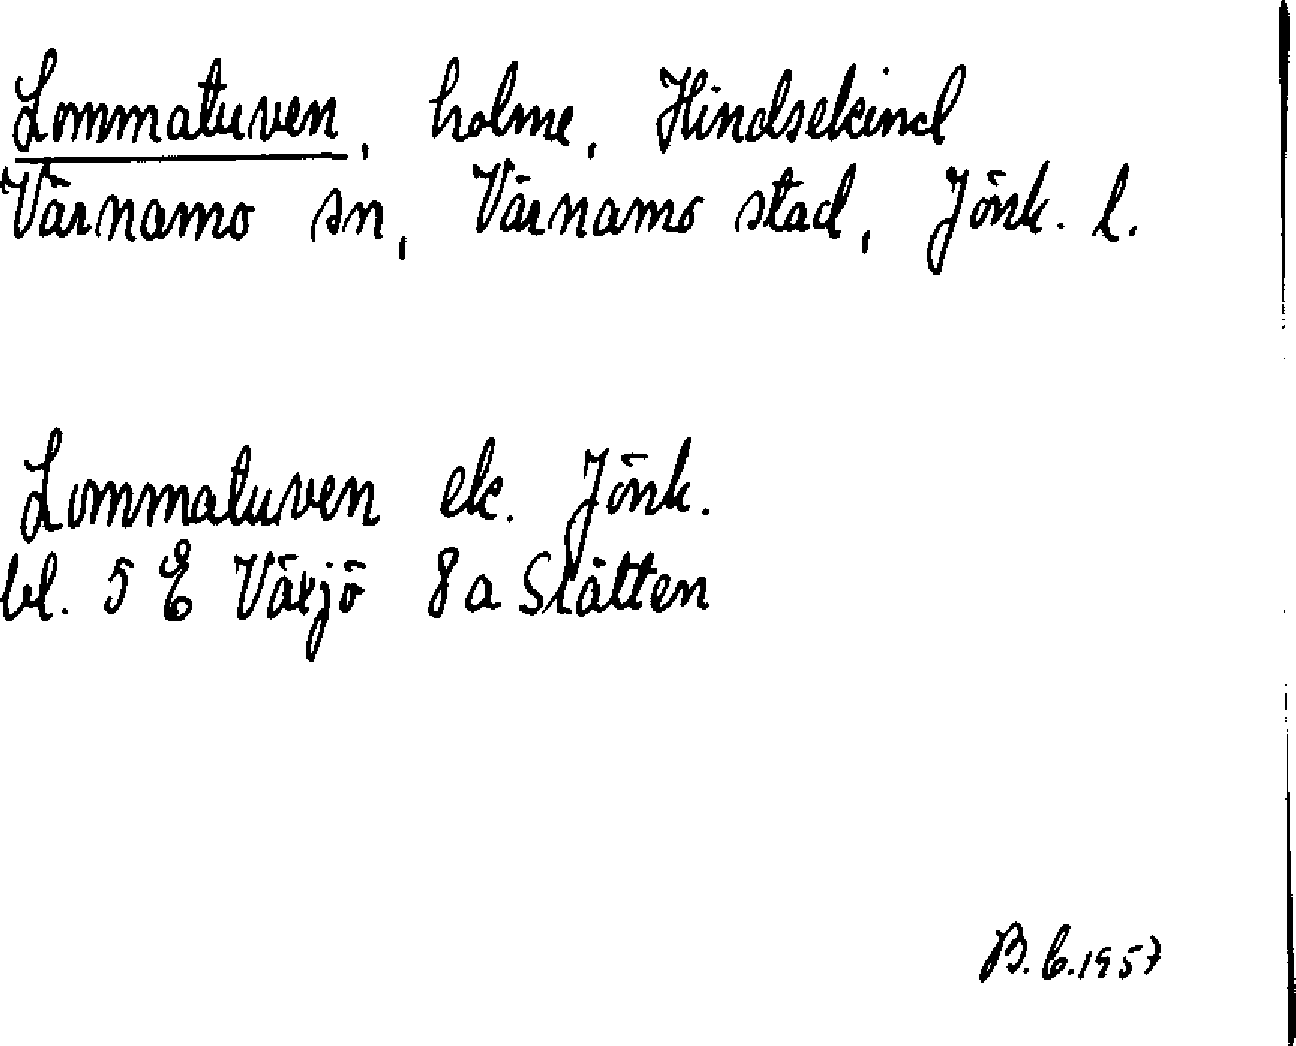 Lommatuven, holme, Hindsekind
Värnamo sn, Värnamo stad, Jönk. l.
Lommatuven ek. Jönk.
bl. 5 E Växjö 8a Slätten
B. 6.1957